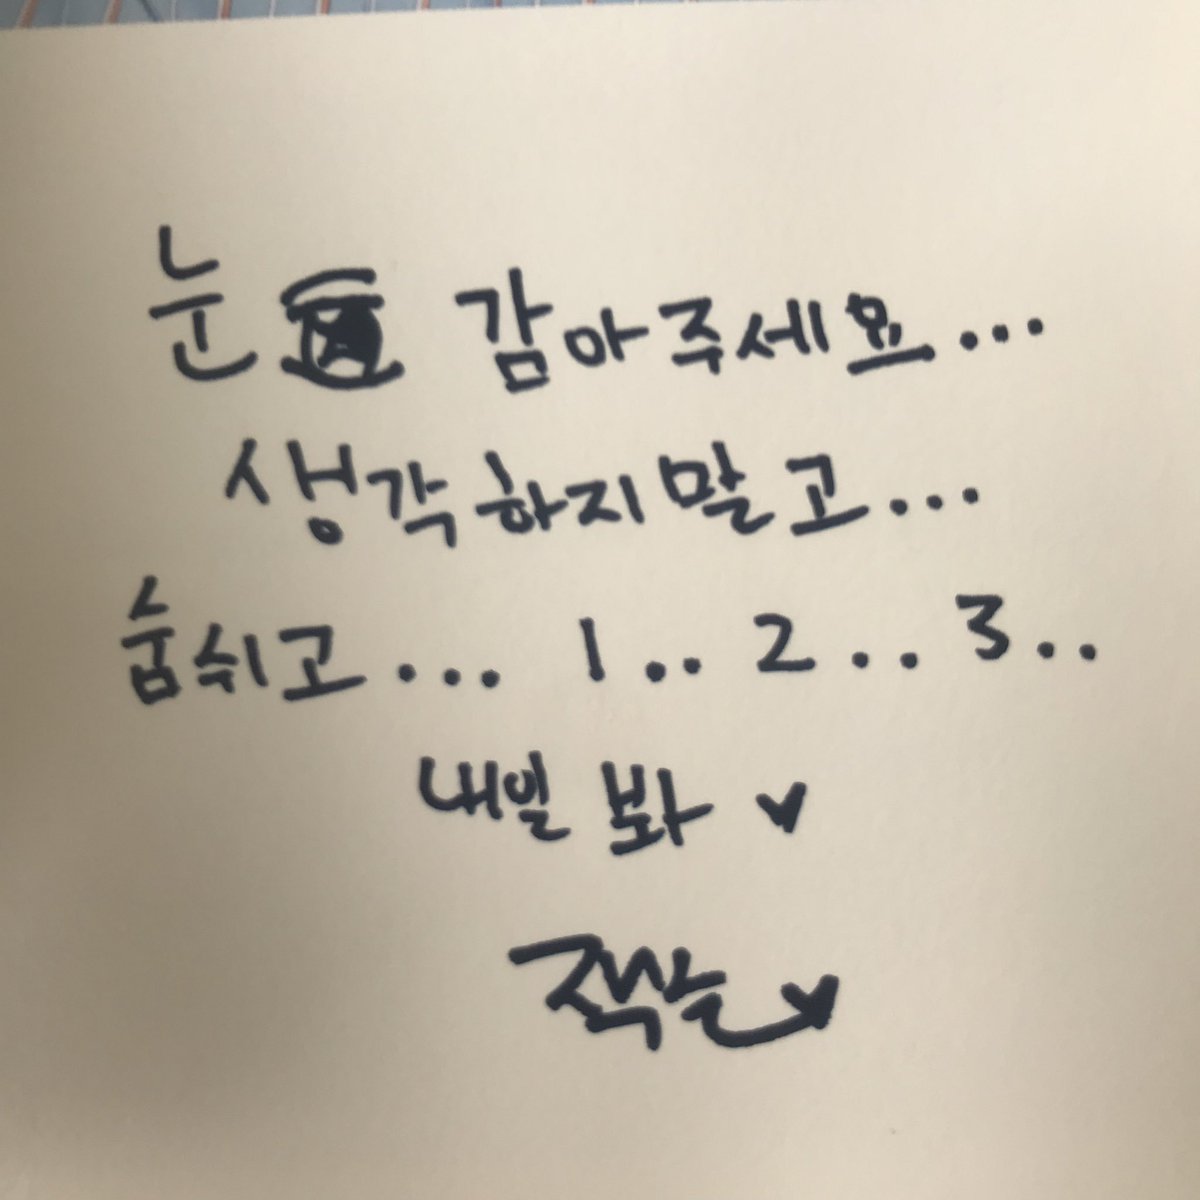 눈 감아주세요...
생각하지말고...
숨쉬고... 1.. 2.. 3..
내일 봐 ♥